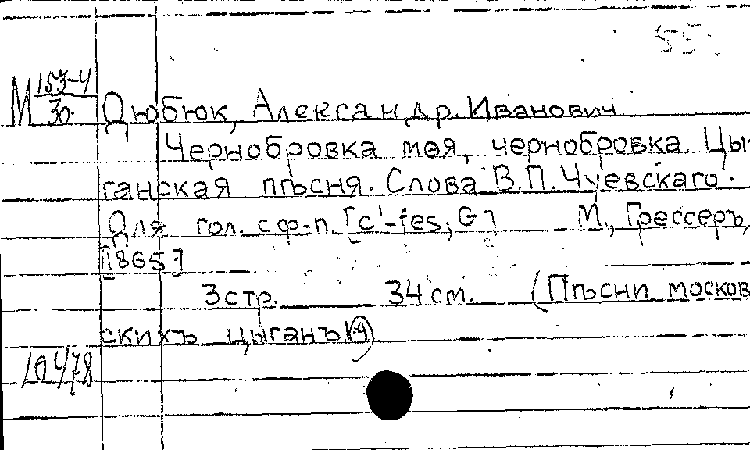 М 153-4
30.
Дюбюк, Александр Иванович
Чернобровка моя, чернобровка. Цы-
ганская пѣсня. Слова В.П. Чуевскаго.
Для гол. с ф-п. [c'-fes, G] М., Грессеръ,
[1865]
3 стр. 34 см. (Пѣсни москов
скихъ цыганъ